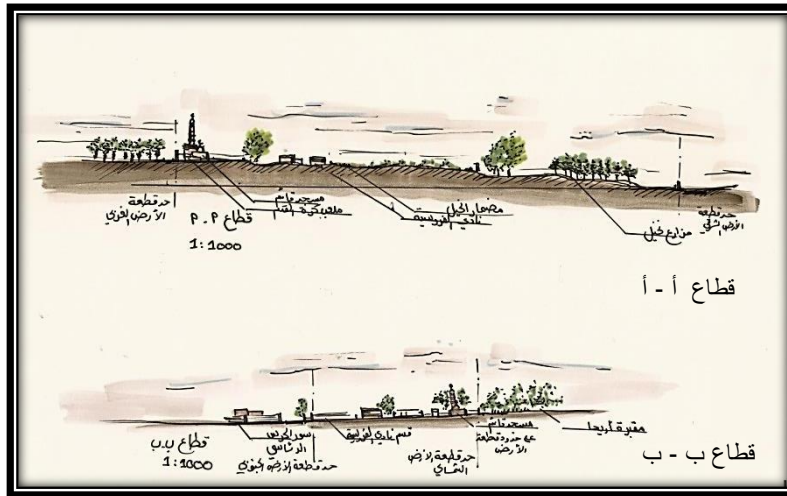 حد قطعة
الأرض الغربي
مسجد قائم
ملعب كرة القدم
قطاع م.م
1:1000
مضمار الخيل
نادي الفروسية
مزارع نخيل
حد قطعة
الأرض الشرقي
قطاع أ - أ
قطاع ب.ب
1:1000
سور الحرس
الرئاسي
حد قطعة الأرض الجنوبي
قسم نادي الفروسية
حد قطعة الأرض
الشمالي
مسجد قائم
على حدود قطعة
الأرض
مقبرة أريحا
قطاع ب - ب